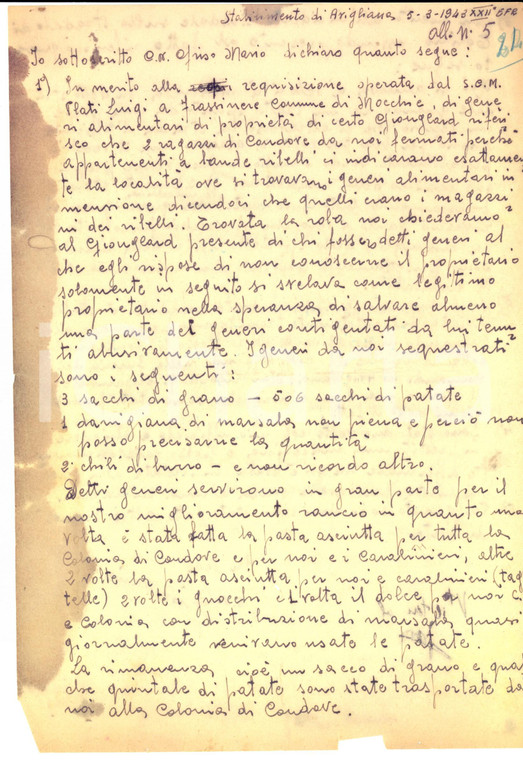 Stabilimento di Avigliana 5-3-1943 XXII° EFR
all. n. 5
Io sottoscritto C.N. Griso Mario dichiaro quanto segue:
1°) In merito alla requisizione operata dal S.C.M.
Plati Luigi a Frassinere Comune di Mocchie, di gene
ri alimentari di proprietà di certo Giongeard riferi
sco che 2 ragazzi di Condove da noi fermati perchè
appartenenti a bande ribelli ci indicavano esattamen
te la località ove si trovavano i generi alimentari in
menzione dicendoci che quelli erano i magazzi
ni dei ribelli. Trovata la roba noi chiedevamo
al Giongeard presente di chi fossero detti generi al
che egli rispose di non conoscerne il proprietario
solamente in seguito si svelava come legittimo
proprietario nella speranza di salvare almeno
una parte dei generi contigentati da lui tenu
ti abusivamente. I generi da noi sequestrati
sono i seguenti:
3 sacchi di grano - 5 o 6 sacchi di patate
1 damigiana di marsala non piena e perciò non
posso precisarne la quantità
2 chili di burro - e non ricordo altro.
Detti generi servirono in gran parte per il
nostro miglioramento rancio in quanto una
volta è stata fatta la pasta asciutta per tutta la
Colonia di Condove e per noi e i Carabinieri, altre
2 volte la pasta asciutta per noi e carabinieri (tag
telle) 2 volte i gnocchi e 1 volta il dolce per noi C
e Colonia con distribuzione di marsala quasi
giornalmente venivano usate le patate.
La rimanenza cioè un sacco di grano e qual
che quintale di patate sono state trasportate da
noi alla Colonia di Condove.